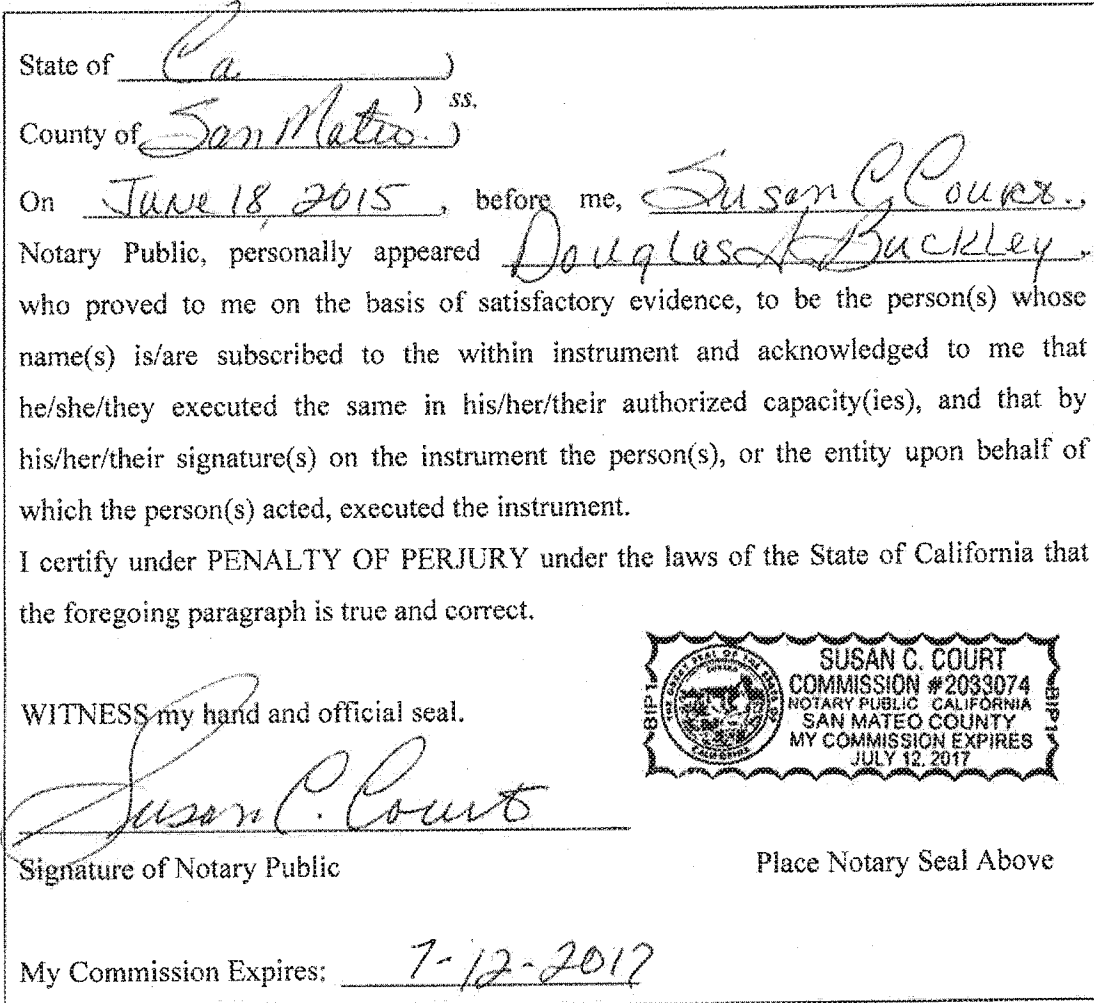 State of Ca )
) ss.
County of San Mateo. )
On June 18, 2015, before me, Susan C. Court.,
Notary Public, personally appeared Douglas Buckley,
who proved to me on the basis of satisfactory evidence, to be the person(s) whose
name(s) is/are subscribed to the within instrument and acknowledged to me that
he/she/they executed the same in his/her/their authorized capacity(ies), and that by
his/her/their signature(s) on the instrument the person(s), or the entity upon behalf of
which the person(s) acted, executed the instrument.
I certify under PENALTY OF PERJURY under the laws of the State of California that
the foregoing paragraph is true and correct.
WITNESS my hand and official seal.
SUSAN C. COURT
COMMISSION #2033074
NOTARY PUBLIC CALIFORNIA
SAN MATEO COUNTY
MY COMMISSION EXPIRES
JULY 12, 2017
BIP1
BIP1
Susan C. Court
Signature of Notary Public
Place Notary Seal Above
My Commission Expires: 7-12-2017